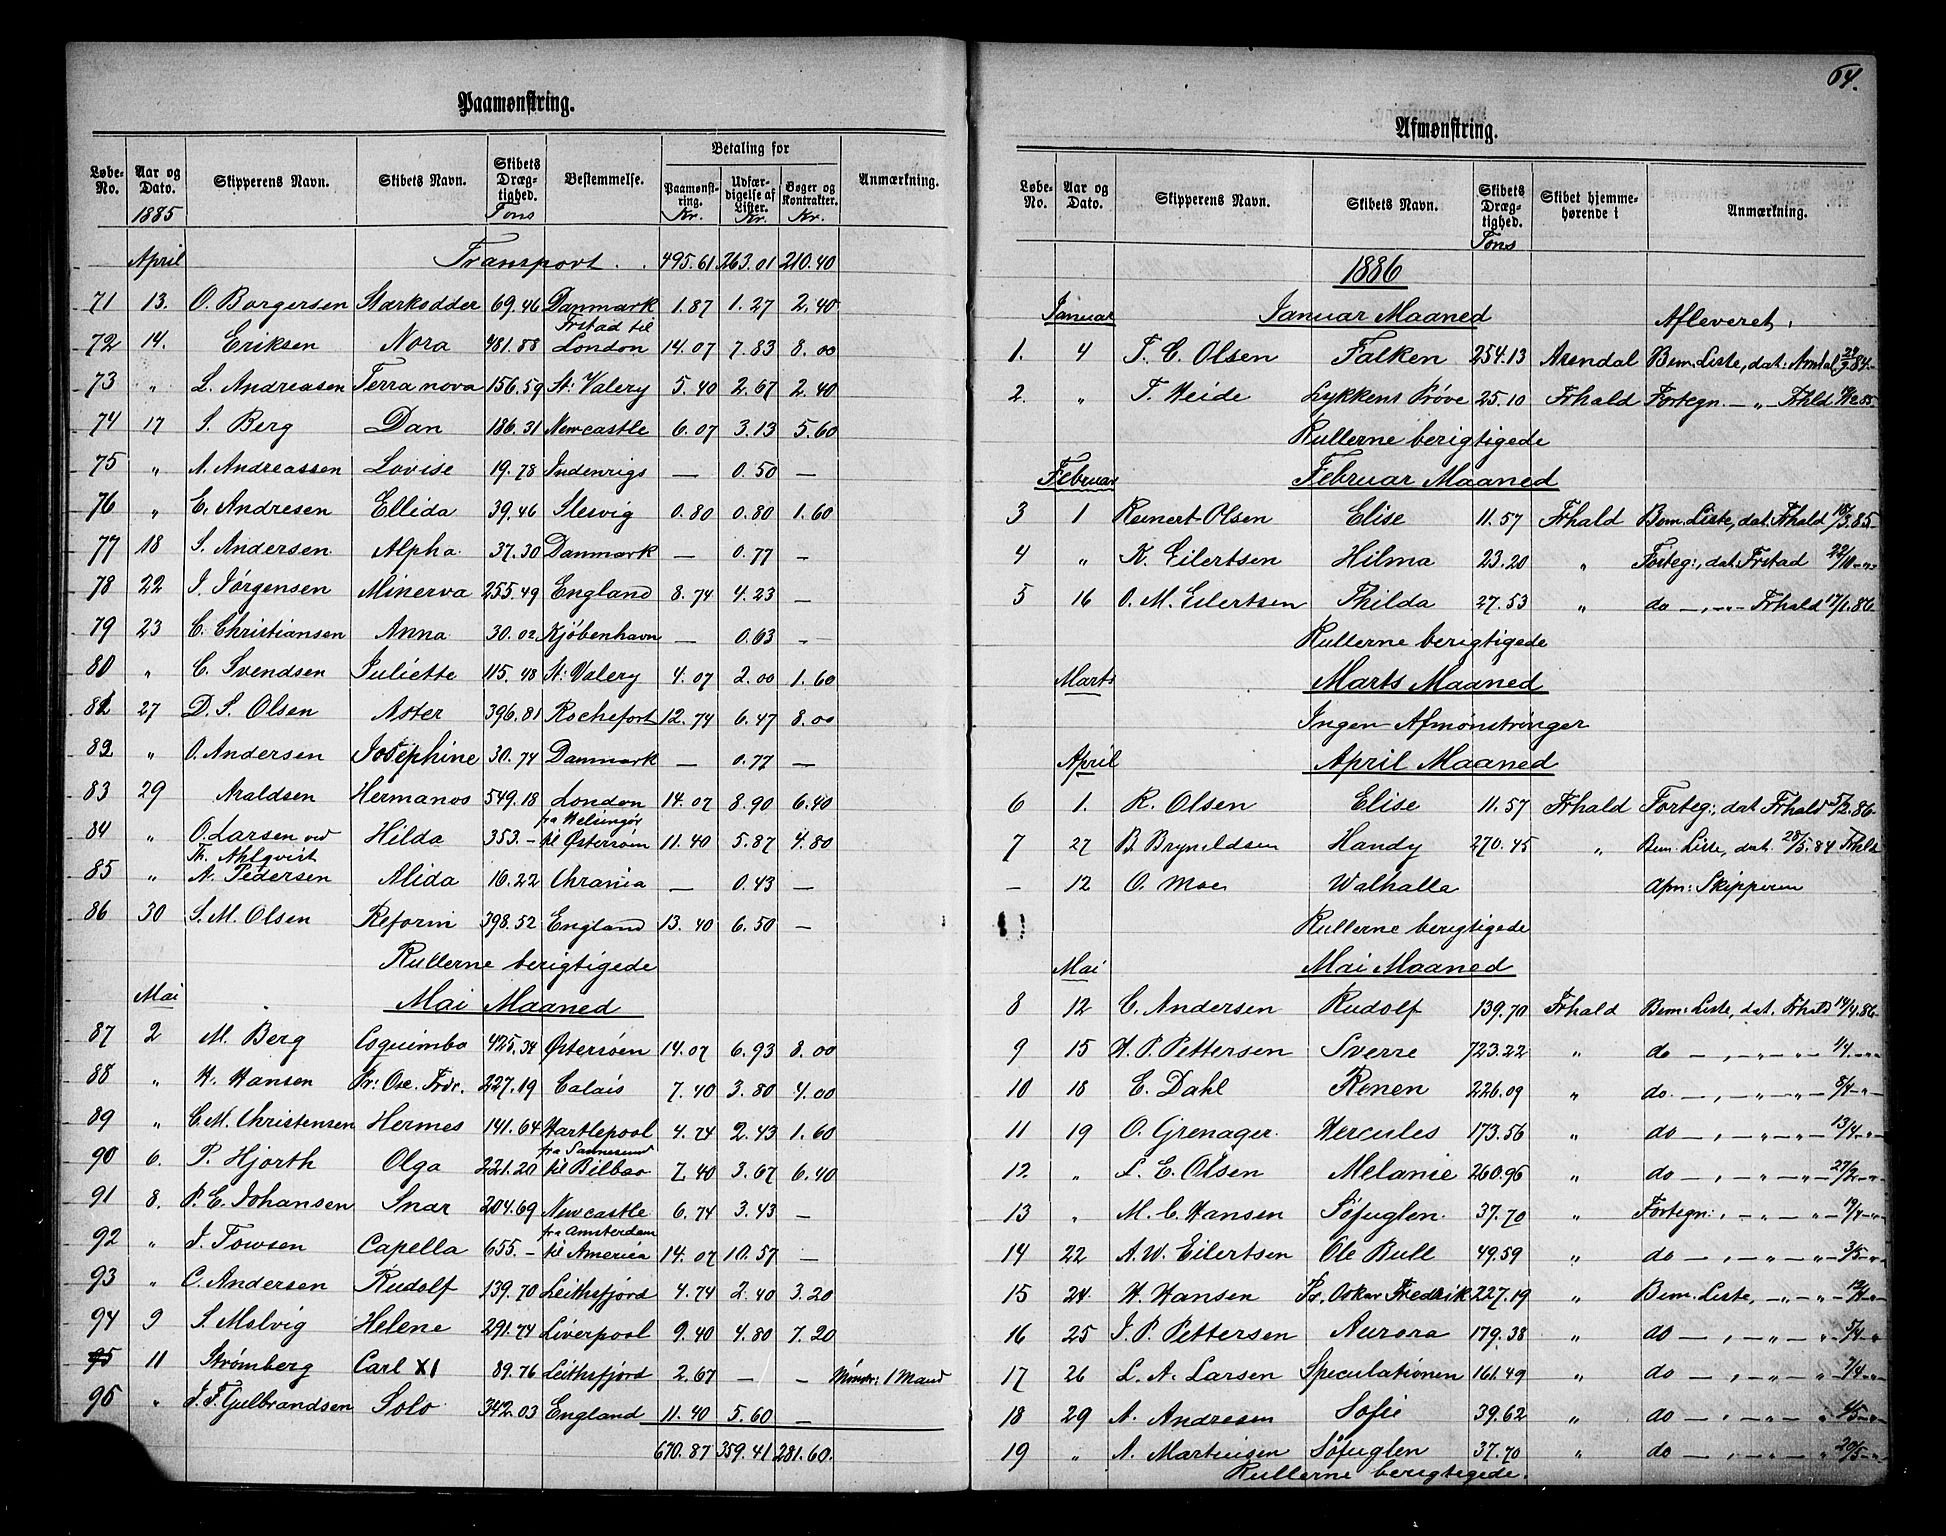 Paamønstring.
Løbe-No. | Aar og Dato. | Skipperens Navn. | Skibets Navn. | Skibets Dræg-tighed. | Bestemmelse. | Betaling for | Anmærkning.
Paamønst-ring. | Udfær-digelse af Lister. | Bøger og Kontrakter.
1885 | Tons | Kr. | Kr. | Kr.
April | Transport | 495.61 | 263.01 | 210.40
71 | 13. | O. Borgersen | Stærkodder | 69.46 | Danmark | 1.87 | 1.27 | 2.40
72 | 14. | Eriksen | Nora | 481.88 | Frstad til London | 14.07 | 7.83 | 8.00
73 | " | L. Andreasen | Terra nova | 156.59 | St: Valery | 5.40 | 2.67 | 2.40
74 | 17 | S. Berg | Dan | 186.31 | Newcastle | 6.07 | 3.13 | 5.60
75 | " | A. Andreassen | Lovise | 19.78 | Indenrigs | — | 0.50 | —
76 | " | E. Andresen | Ellida | 39.46 | Slesvig | 0.80 | 0.80 | 1.60
77 | 18 | S. Andersen | Alpha | 37.30 | Danmark | — | 0.77 | —
78 | 22 | J. Jørgensen | Minerva | 255.49 | England | 8.74 | 4.23 | —
79 | 23 | C. Christiansen | Anna | 30.02 | Kjøbenhavn | — | 0.63 | —
80 | " | C. Svendsen | Juliette | 115.48 | St: Valery | 4.07 | 2.00 | 1.60
81 | 27 | D. S. Olsen | Aster | 396.81 | Rochefort | 12.74 | 6.47 | 8.00
82 | " | O. Andersen | Josephine | 30.74 | Danmark | — | 0.77 | —
83 | 29 | Araldsen | Hermanos | 549.18 | London | 14.07 | 8.90 | 6.40
84 | " | O. Larsen ved Th. Ahlqvist | Hilda | 353.— | fra Helsingør til Østersøen | 11.40 | 5.87 | 4.80
85 | " | A. Pedersen | Alida | 16.22 | Chrania | — | 0.43 | —
86 | 30 | S. M. Olsen | Reform | 398.52 | England | 13.40 | 6.50 | —
Rullerne berigtigede
Mai | Mai Maaned
87 | 2 | M. Berg | Coquimbo | 425.34 | Østersøen | 14.07 | 6.93 | 8.00
88 | " | H. Hansen | Pr: Osc. Frdr. | 227.19 | Calais | 7.40 | 3.80 | 4.00
89 | " | C. M. Christensen | Hermes | 141.64 | Hartlepool | 4.74 | 2.43 | 1.60
90 | 6. | P. Hjorth | Olga | 221.20 | fra Sannesund til Bilbao | 7.40 | 3.67 | 6.40
91 | 8. | P. E. Johansen | Snar | 204.69 | Newcastle | 6.74 | 3.43 | —
92 | " | J. Towsen | Capella | 655.— | fra Amsterdam til America | 14.07 | 10.57 | —
93 | " | C. Andersen | Rudolf | 139.70 | Leithsfjord | 4.74 | 2.40 | 3.20
94 | 9 | S. Melvig | Helene | 291.74 | Liverpool | 9.40 | 4.80 | 7.20
95 | 11 | Strømberg | Carl XI | 89.76 | Leithsfjord | 2.67 | — | — | Mønstr: 1 Mand
95 | " | J. F. Gulbrandsen | Solo | 342.03 | England | 11.40 | 5.60 | —
670.87 | 359.41 | 281.60.
64.
Afmønstring.
Løbe-No. | Aar og Dato. | Skipperens Navn. | Skibets Navn. | Skibets Dræg-tighed. | Skibet hjemme-hørende i | Anmærkning.
Tons
1886
Januar | Januar Maaned | Afleveret:
1. | 4 | T. C. Olsen | Falken | 254.13 | Arendal | Bem. Liste, dat: Arndal 84
2. | " | T. Heide | Lykkens Prøve | 25.10 | Frhald | Fortegn. — " — Frhld 85
Rullerne berigtigede
Februar | Februar Maaned
3 | 1 | Reinert Olsen | Elise | 11.57 | Frhald | Bem. Liste, dat. Frhald 18/3.85.
4 | " | K. Eilertsen | Hilma | 23.20 | " | Forteg:, dat: Frstad 22/10 - " -
5 | 16 | O. M. Eilertsen | Thilda | 27.53 | " | do — , — " — Frhald 17/1.86
Rullerne berigtigede
Marts | Marts Maaned
Ingen Afmønstringer
April | April Maaned
6 | 1. | R. Olsen | Elise | 11.57 | Frhald | Forteg:, dat Frhald 5/2.86.
7 | 27 | B. Brynildsen | Handy | 270.45 | " | Bem. Liste, dat. 28/5.84 Frhld
— | 12 | O. Moe | Walhalla | Afm: Skipperen
Rullerne berigtigede
Mai | Mai Maaned
8 | 12 | C. Andersen | Rudolf | 139.70 | Frhald | Bem: Liste, dat. Frhald 14/4.86
9 | 15 | H. P. Pettersen | Sverre | 723.22 | " | do — , — " — " — 1/4 — " -
10 | 18 | E. Dahl | Renen | 226.09 | " | do. — , — " — " — 8/4 - " -
11 | 19 | O. Grenager | Hercules | 173.56 | " | do — , — " — " — 13/4 - " -
12. | " | L. E. Olsen | Melanie | 260.96 | " | do — , — " — " — 27/2 - " -
13 | " | M. C. Hansen | Søfuglen | 37.70 | " | Fortegn:, — " — " — 19/4 - " -
14 | 22 | A. W. Eilertsen | Ole Bull | 49.59 | " | do — , — " — " — 3/5 - " -
15 | 24 | H. Hansen | Pr. Oskar Fredrik | 227.19 | " | Bem. Liste, — " — " —
16 | 25 | J. P. Pettersen | Aurora | 179.38 | " | do — , — " — " — 5/4 - " -
17 | 26 | L. A. Larsen | Speculationen | 161.49 | " | do — , — " — " — 7/4 - " -
18 | 29 | A. Andresen | Sofie | 39.62 | " | do — , — " — "
19 | " | A. Martinisen | Søfuglen | 37.70 | " | do — , — " — " 20/5 - " -
Rullerne berigtigede.